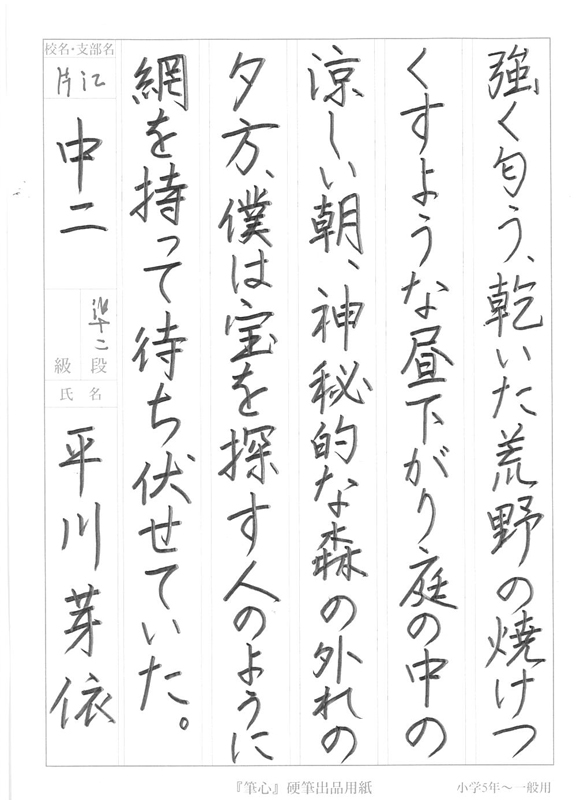 強く匂う、乾いた荒野の焼けつ
くすような昼下がり庭の中の
涼しい朝、神秘的な森の外れの
夕方、僕は宝を探す人のように
網を持って待ち伏せていた。
校名・支部名
片江
中二
準十二
級 段
氏 名
平川芽依
『筆心』硬筆出品用紙
小学5年～一般用